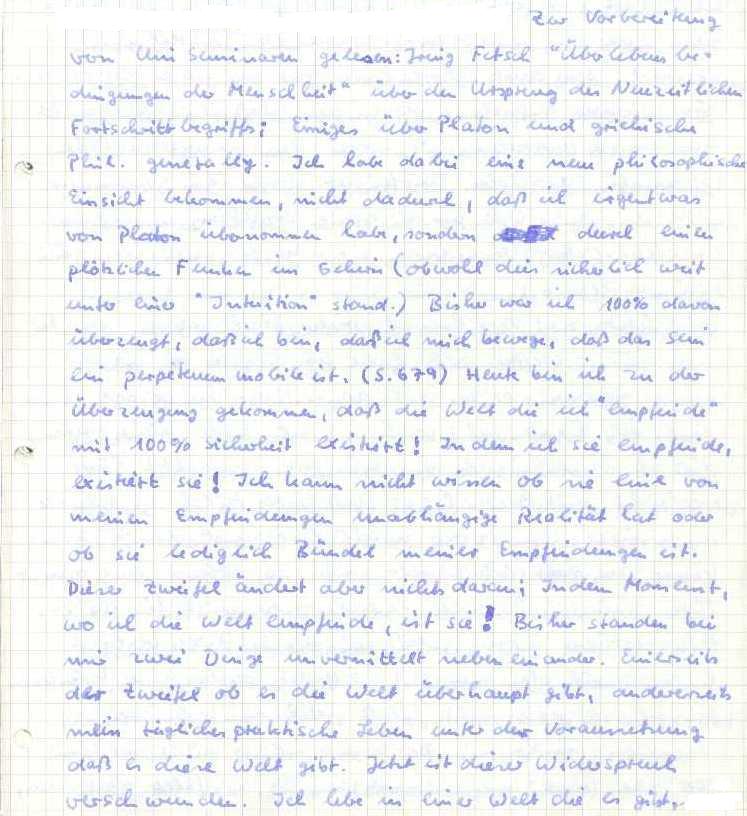 Zur Vorbereitung
von Uni Seminaren gelesen: Iring Fetsch "Überlebensbe-
dingungen der Menschheit" über den Ursprung des Neuzeitlichen
Fortschrittbegriffs; Einiges über Platon und griechische
Phil. generally. Ich habe dabei eine neue philosophische
Einsicht bekommen, nicht dadurch, daß ich irgentwas
von Platon übernommen habe, sondern durch einen
plötzlichen Funken im Gehirn (obwohl dies sicherlich weit
unter einer "Intuition" stand.) Bisher war ich 100% davon
überzeugt, daß ich bin, daß ich mich bewege, daß das Sein
ein perpetuum mobile ist. (S. 679) Heute bin ich zu der
Überzeugung gekommen, daß die Welt die ich "empfinde"
mit 100% Sicherheit existiert! Indem ich sie empfinde,
existiert sie! Ich kann nicht wissen ob sie eine von
meinen Empfindungen unabhängige Realität hat oder
ob sie lediglich Bündel meiner Empfindungen ist.
Dieser Zweifel ändert aber nichts daran; In dem Moment,
wo ich die Welt empfinde, ist sie! Bisher standen bei
mir zwei Dinge unvermittelt nebeneinander. Einerseits
der Zweifel ob es die Welt überhaupt gibt, andererseits
mein tägliches praktische Leben unter der Voraussetzung
daß es diese Welt gibt. Jetzt ist dieser Widerspruch
verschwunden. Ich lebe in einer Welt die es gibt.